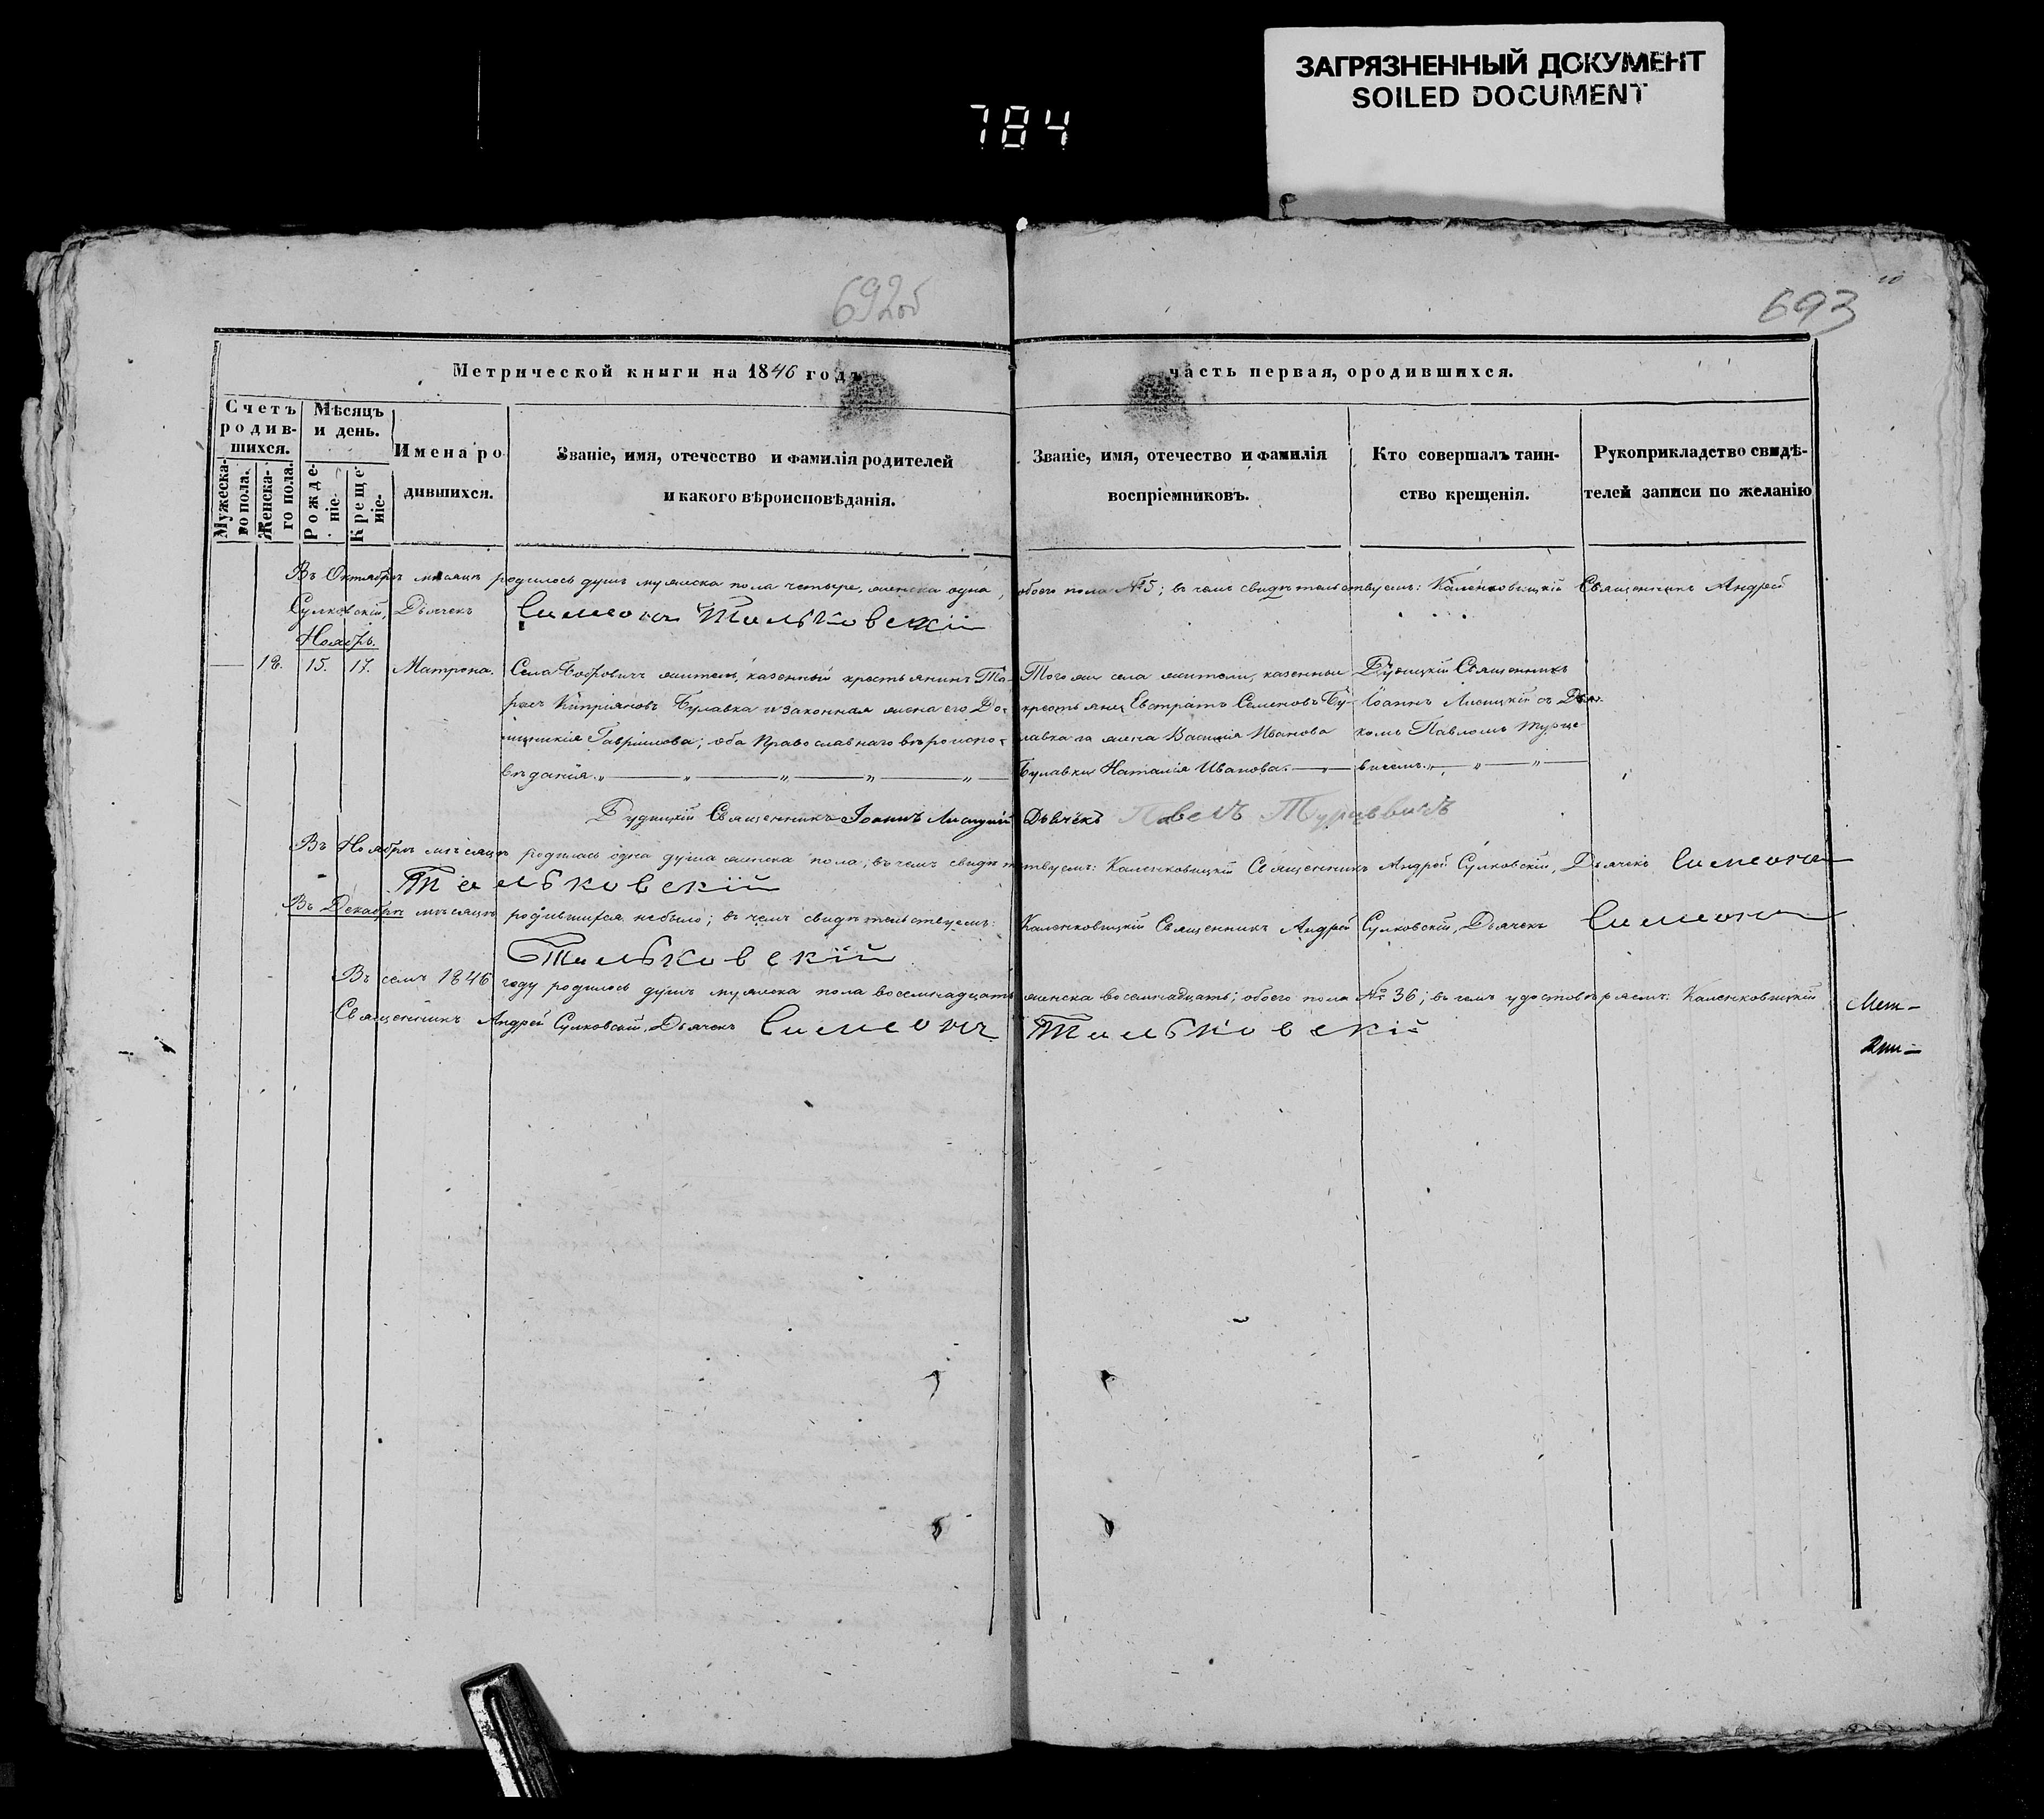 ЗАГРЯЗНЕННЫЙ ДОКУМЕНТ
SOILED DOCUMENT
784
692об
693
Метрической книги на 1846 годъ
часть первая, ородившихся.
Счетъ родив-шихся.
Мужеска-го пола.
Женска-го пола.
Мѣсяцъ и день.
Рожде-ніе.
Креще-ніе.
Имена ро
дившихся.
Званіе, имя, отечество и фамилія родителей
и какого вѣроисповѣданія.
Званіе, имя, отечество и фамилія
воспріемниковъ.
Кто совершалъ таин-
ство крещенія.
Рукоприкладство свидѣ-
телей записи по желанію
Въ Октябрѣ мѣсяцѣ родилось душъ мужеска пола четыре, женска одна, обоего пола № 5; въ чемъ свидѣтельствуемъ: Каленковицкій Священникъ Андрей
Сулковскій, Дьячекъ Симеонъ Тальковскій
Ноябрь.
— 18. 15. 17. Матрона.
Села Бобровичъ житель, казенный крестьянинъ Та-
расъ Кипріяновъ Булавка и законная жена его До-
Гавріилова; оба Православнаго вѣроиспо-
вѣданія.
Того же села жители, казенные
крестьянец Евстратъ Семеновъ Бу-
лавка и жена Василія Иванова
Булавки Наталія Иванова.
Священникъ
Іоаннъ Лисицкій съ Дья-
комъ Павломъ Турце
вичемъ.
Священникъ Іоаннъ Лисицкій Дьячекъ Павелъ Турцевичъ
Въ Ноябрѣ мѣсяцѣ родилась одна душа женска пола; въ чемъ свидѣтельствуемъ: Каленковицкій Священникъ Андрей Сулковскій, Дьячекъ Симеонъ
Тальковскій
Въ Декабрѣ мѣсяцѣ родившихся небыло; въ чемъ свидѣтельствуемъ: Каленковицкій Священникъ Андрей Сулковскій, Дьячекъ Симеонъ
Тальковскій
Въ семъ 1846 году родилось душъ мужеска пола восемнадцать женска восемнадцать; обоего пола № 36; въ чемъ удостовѣряемъ: Каленковицкій
Священникъ Андрей Сулковскій, Дьячекъ Симеонъ Тальковскій